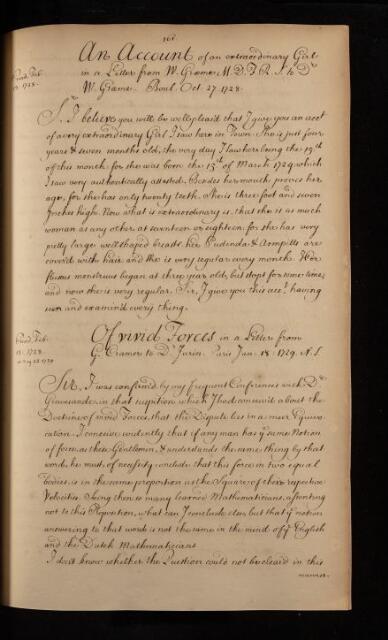 An Account of an extraordinary Girl
in a Letter from W. Græme M.D. F.R.S. to Dr
W. Græme. Oct. 27. 1728
Read Feb.
1728.
Sr. I believe you will be well pleas'd that I give you an acct
of a very extraordinary Girl I saw here in Town. She is just four
years & seven months old, the very day I saw her being the 13th
of this month for she was born the 13th of March 1724 which
I saw very authentically attested. Besides her mouth proves her
age, for she has only twenty teeth. She is three foot and seven
Inches high. Now what is extraordinary is, that she is as much
woman as any other at seventeen or eighteen, for she has very
pretty large well shaped breasts, her Pudenda & Armpitts are
cover'd with hair and she is very regular every month. Her
fluxus menstruus began at three year old, but stopt for some time,
and now she is very regular. Sir, I give you this acct. having
seen and examin'd every thing.
Of vivid Forces in a Letter from
G. Cramer to Dr Jurin. Paris Jan. 18. 1729. N.S.
Read Feb.
1728
Sir, I was confirmed by my frequent Conferences with Dr
Gravesande, in that suspition which I had conceiv'd about the
Doctrine of vivid Forces, that the Dispute lies in a meer Equivo-
cation. I conceive evidently that if any man has ye same Notion
of force as these Gentlemen, & understands the same thing by that
word, he must of necessity conclude that this force in two equal
bodies, is in the same proportion as the Squares of there respective
Velocities. Seeing then so many learned Mathematicians, assenting
not to this Proposition, what can I conclude else, but that ye notion
answering to that word is not the same in the mind of ye English
and the Dutch Mathematicians
I don't know whether the Question could not be clear'd in this
manner.